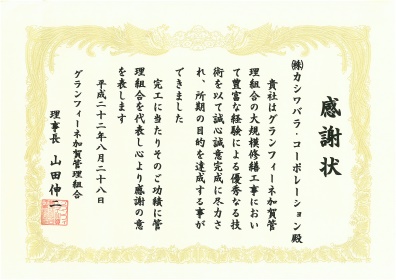 感謝状
㈱カシワバラ・コーポレーション殿
貴社はグランフィーネ加賀管
理組合の大規模修繕工事におい
て豊富な経験による優秀なる技
術を以て誠心誠意完成に尽力さ
れ、所期の目的を達成する事が
できました
完工に当たりそのご功績に管
理組合を代表し心より感謝の意
を表します
平成二十二年八月二十八日
グランフィーネ加賀管理組合
理事長 山田伸二